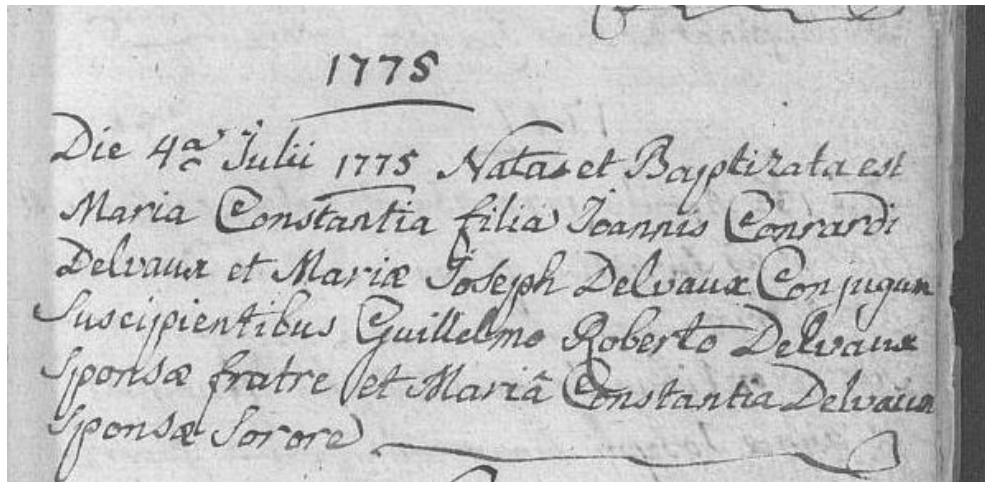 1775
Die 4ª Julii 1775 Nata et Baptizata est
Maria Constantia filia Joannis Conrardi
Delvaux et Mariæ Joseph Delvaux Conjugum
Suscipientibus Guillelmo Roberto Delvaux
Sponsæ fratre et Mariâ Constantia Delvaux
Sponsæ Sorore